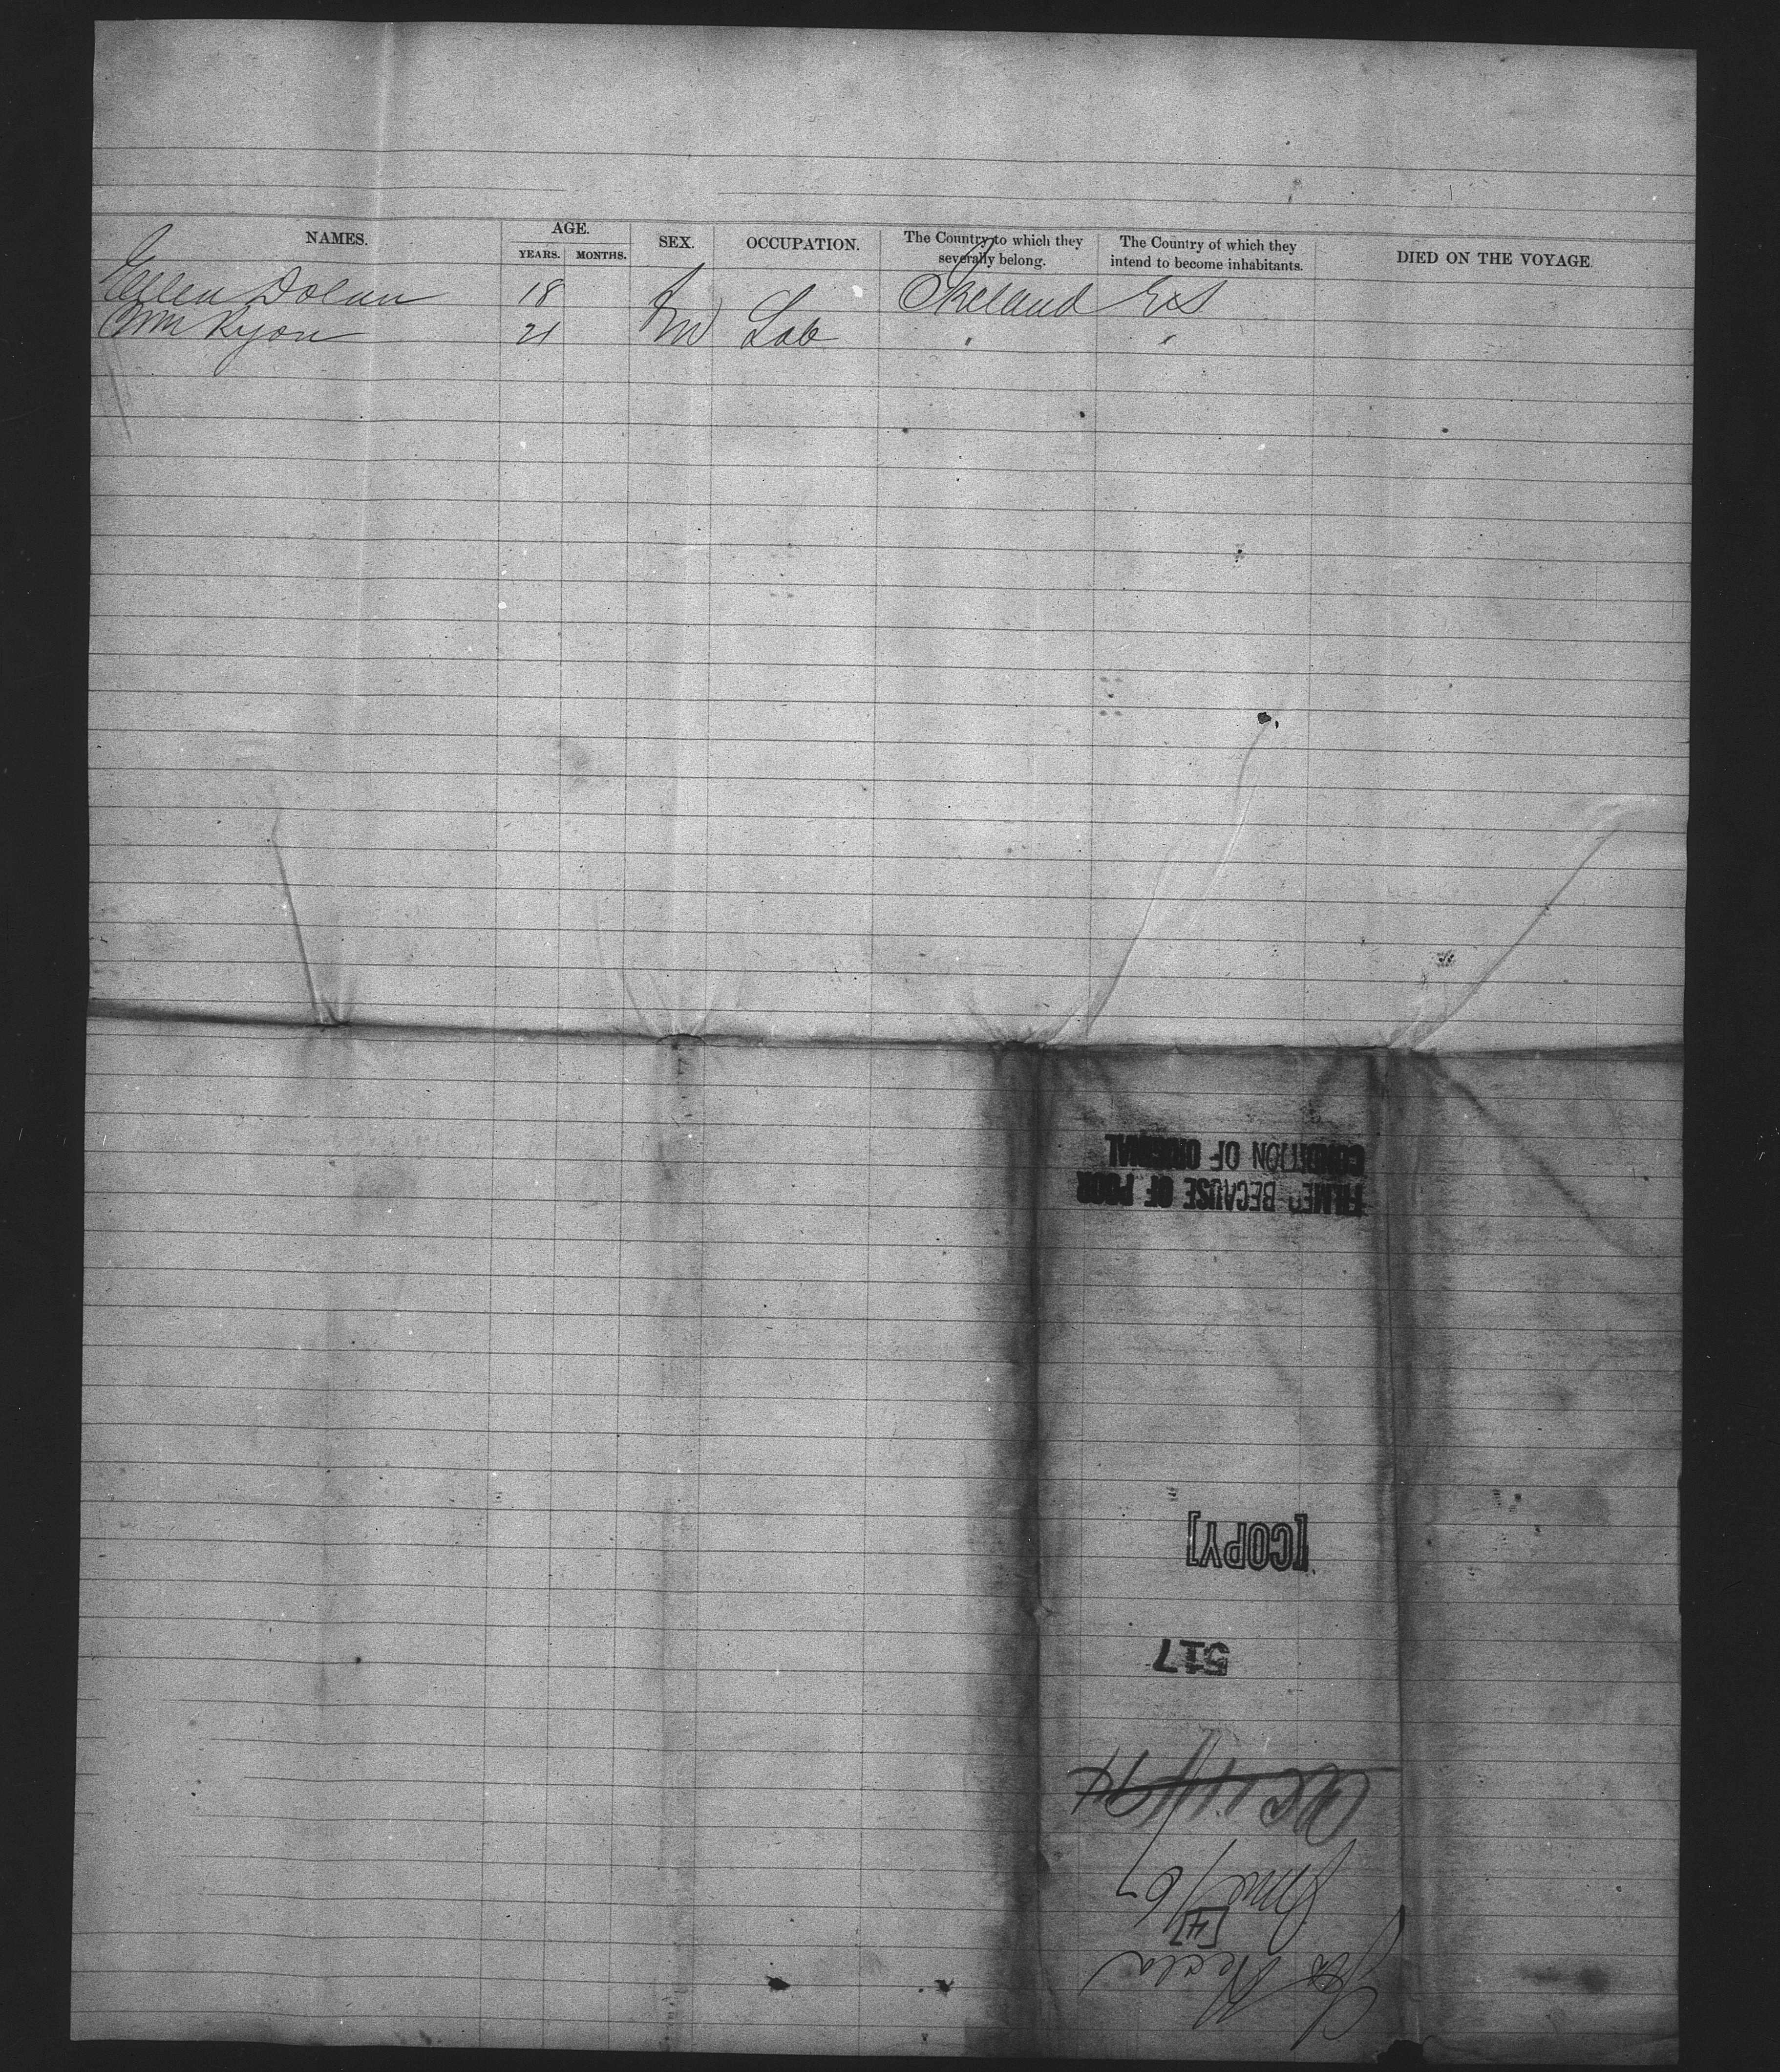 NAMES. AGE. SEX. OCCUPATION. The Country to which they severally belong. The Country of which they intend to become inhabitants. DIED ON THE VOYAGE.
YEARS. MONTHS.
Ellen Dolan 18 f Ireland U S
Wm Ryon 21 m Lab " "
SS Hecla
[4]
June/67
517
[COPY]
FILMED BECAUSE OF POOR
CONDITION OF ORIGINAL